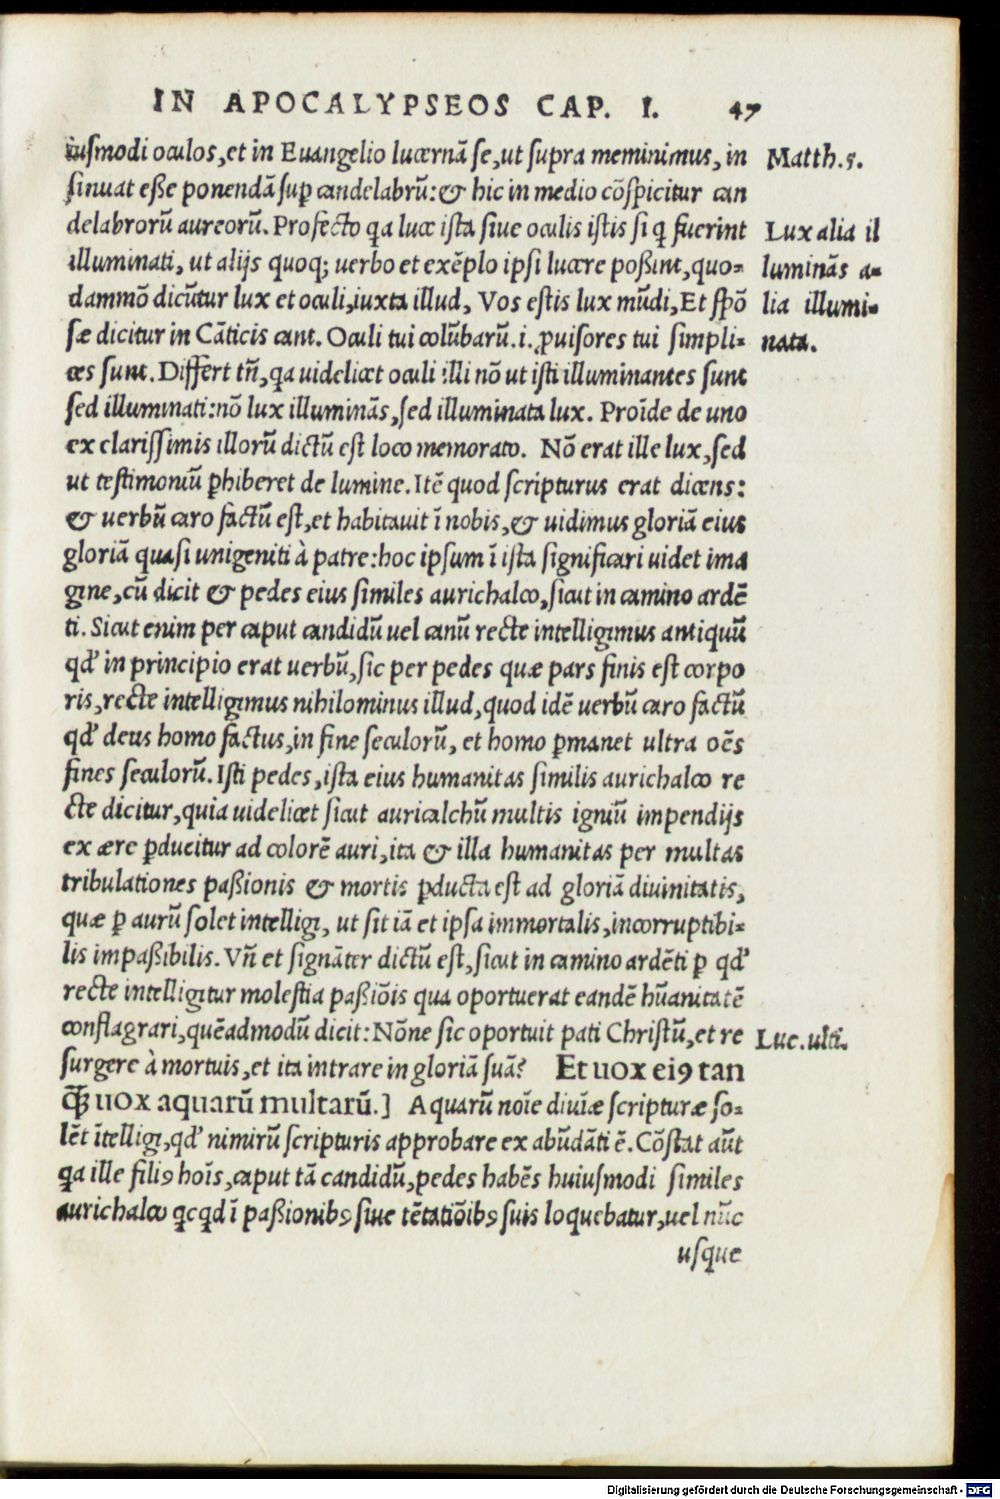 IN APOCALYPSEOS CAP. I. 47
iusmodi oculos, et in Euangelio lucernā se, ut supra meminimus, in
Matth. 5.
sinuat eße ponendā sup̱ candelabrū: & hic in medio cōspicitur can
delabrorū aureorū. Profecto qa luce ista siue oculis istis si q fuerint
Lux alia il
illuminati, ut alijs quoq; uerbo et exēplo ipsi lucere poßint, quo-
luminās a-
dammō dicūtur lux et oculi, iuxta illud, Vos estis lux mūdi, Et spō
lia illumi-
sæ dicitur in Cāticis cant. Oculi tui colūbarū. i. ꝓuisores tui simpli-
nata.
ces sunt. Differt tñ, qa uidelicet oculi illi nō ut isti illuminantes sunt
sed illuminati: nō lux illuminās, sed illuminata lux. Proīde de uno
ex clarissimis illorū dictū est loco memorato. Nō erat ille lux, sed
ut testimoniū ꝑhiberet de lumine. Itē quod scripturus erat dicens:
& uerbū caro factū est, et habitauit ī nobis, & uidimus gloriā eius
gloriā quasi unigeniti à patre: hoc ipsum ī ista significari uidet ima
gine, cū dicit & pedes eius similes aurichalco, sicut in camino ardē
ti. Sicut enim per caput candidū uel canū recte intelligimus antiquū
qd' in principio erat uerbū, sic per pedes quæ pars finis est corpo
ris, recte intelligimus nihilominus illud, quod idē uerbū caro factū
qd' deus homo factus, in fine seculorū, et homo ꝑmanet ultra oēs
fines seculorū. Isti pedes, ista eius humanitas similis aurichalco re
cte dicitur, quia uidelicet sicut auricalchū multis igniū impendijs
ex ære ꝑducitur ad colorē auri, ita & illa humanitas per multas
tribulationes paßionis & mortis ꝑducta est ad gloriā diuinitatis,
quæ ꝑ aurū solet intelligi, ut sit iā et ipsa immortalis, incorruptibi-
lis impaßibilis. Vñ et signāter dictū est, sicut in camino ardēti ꝑ qd'
recte intelligitur molestia paßiōis qua oportuerat eandē hūanitatē
conflagrari, quēadmodū dicit: Nōne sic oportuit pati Christū, et re
Luc. ulti.
surgere à mortuis, et ita intrare in gloriā suā? Et uox eiꝰ tan
q̄ꝫ uox aquarū multarū.] Aquarū noīe diuīæ scripturæ so-
lēt ītelligi, qd' nimirū scripturis approbare ex abūdāti ē. Cōstat aūt
qa ille filiꝰ hoīs, caput tā candidū, pedes habēs huiusmodi similes
aurichalco qcqd ī paßionibꝰ siue tētatiōibꝰ suis loquebatur, uel nūc
usque
Digitalisierung gefördert durch die Deutsche Forschungsgemeinschaft - DFG